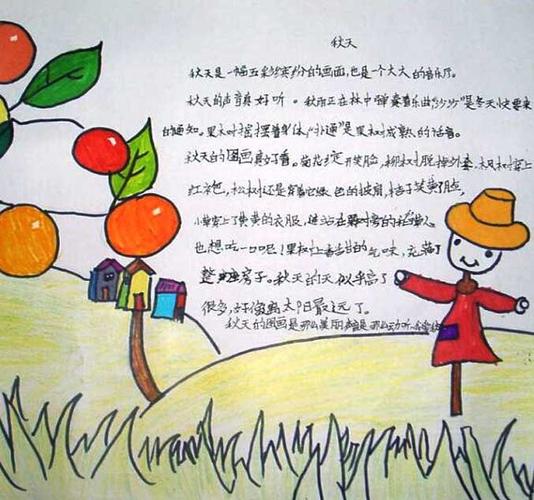 秋天
秋天是一幅五彩缤纷的画面,也是一个大大的音乐厅。
秋天的声音真好听。秋雨正在林中弹奏乐曲"沙沙"是冬天快要来
的通知。果树摇摆着身体,"扑通"是果树成熟的话音。
秋天的图画真好看。菊花绽开笑脸,柳树脱掉外套,枫树穿上
红袍,松树还是穿着它绿色的披肩,桔子笑黄了脸,
小草穿上了黄黄的衣服,进站在
也想吃一口呢!果树上香甜的气味,充满了
整座房子。秋天的天似乎高了
很多,好像离太阳最远了。
秋天的图画是那么美丽声音是那么动听